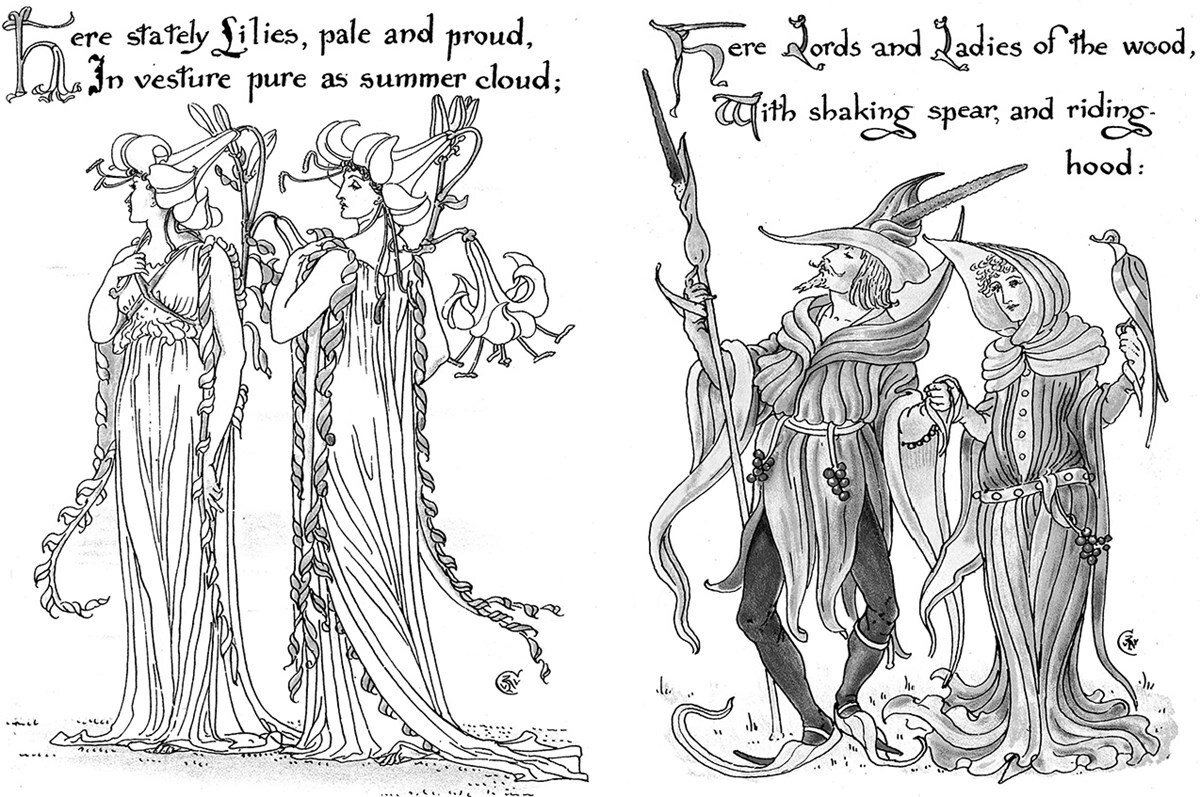 Here stately Lilies, pale and proud,
In vesture pure as summer cloud;
Here Lords and Ladies of the wood,
With shaking spear, and riding-
hood: